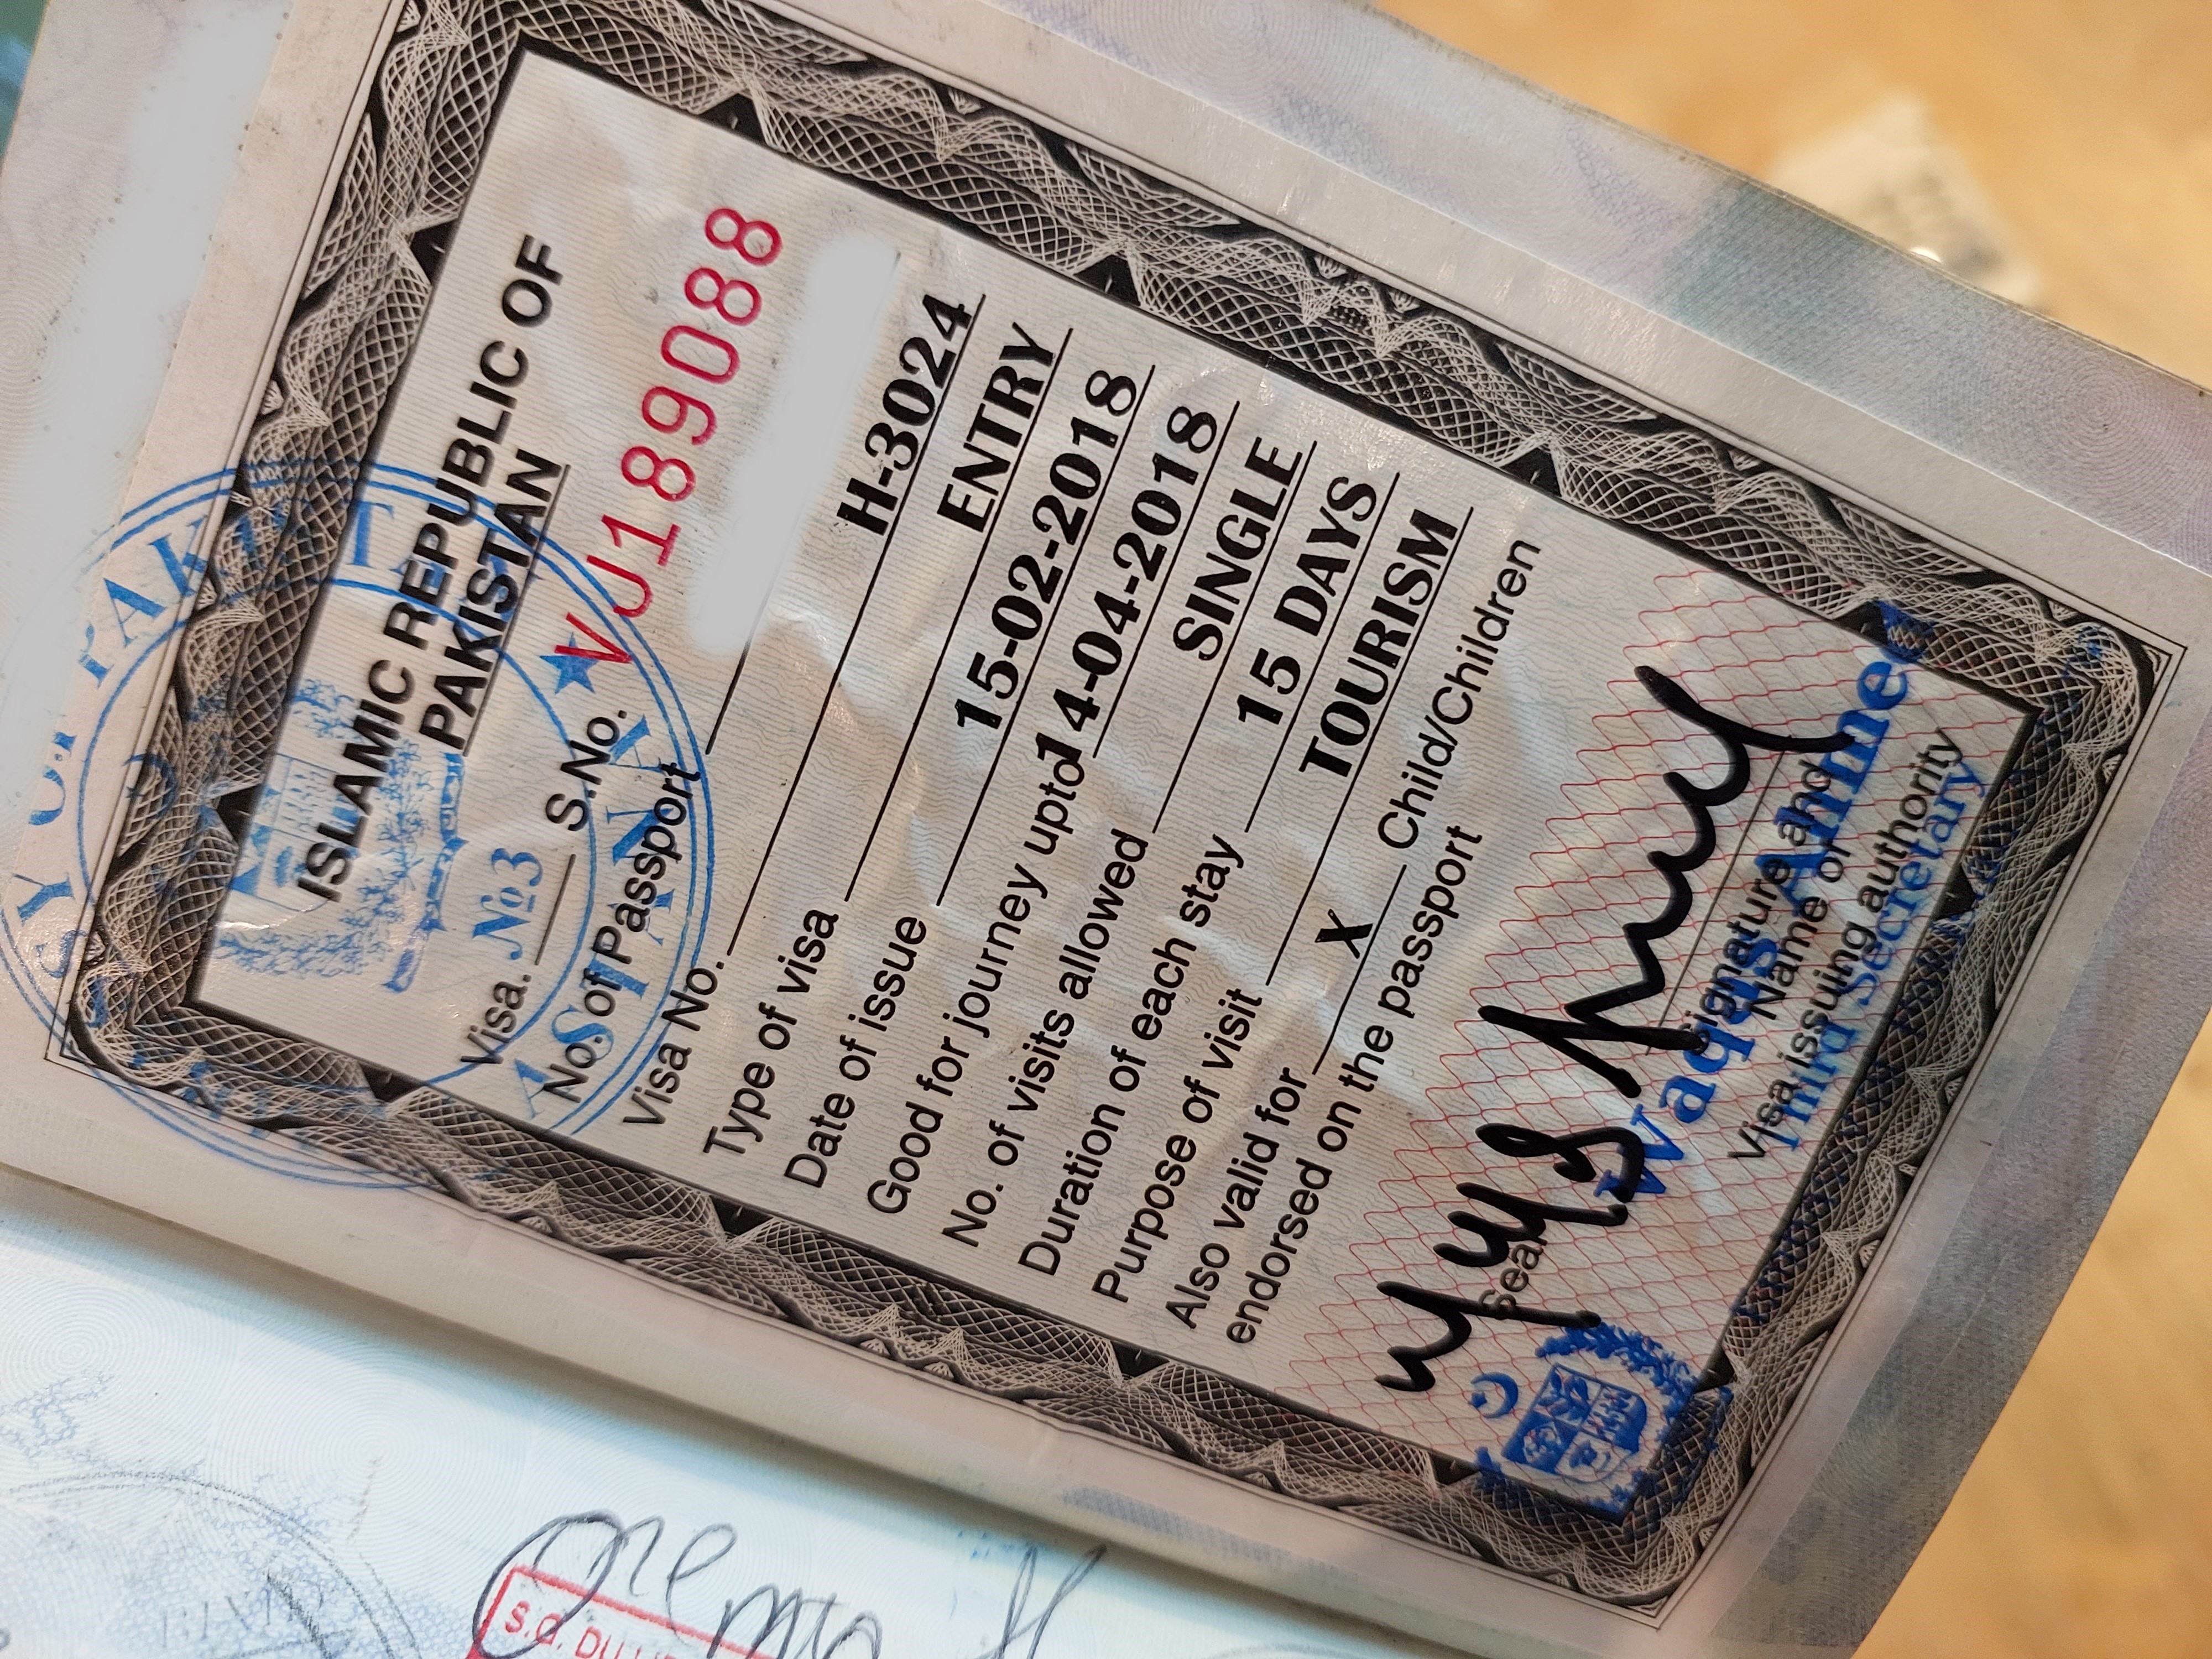 ISLAMIC REPUBLIC OF
PAKISTAN
Visa. №3 S.No. VJ189088
No. of Passport
Visa No. H-3024
Type of visa ENTRY
Date of issue 15-02-2018
Good for journey upto 14-04-2018
No. of visits allowed SINGLE
Duration of each stay 15 DAYS
Purpose of visit TOURISM
Also valid for X Child/Children
endorsed on the passport
Seal
Signature and
Name of
Visa issuing authority
Waqas Ahmed
Third Secretary
ASTANA
S.G. DU